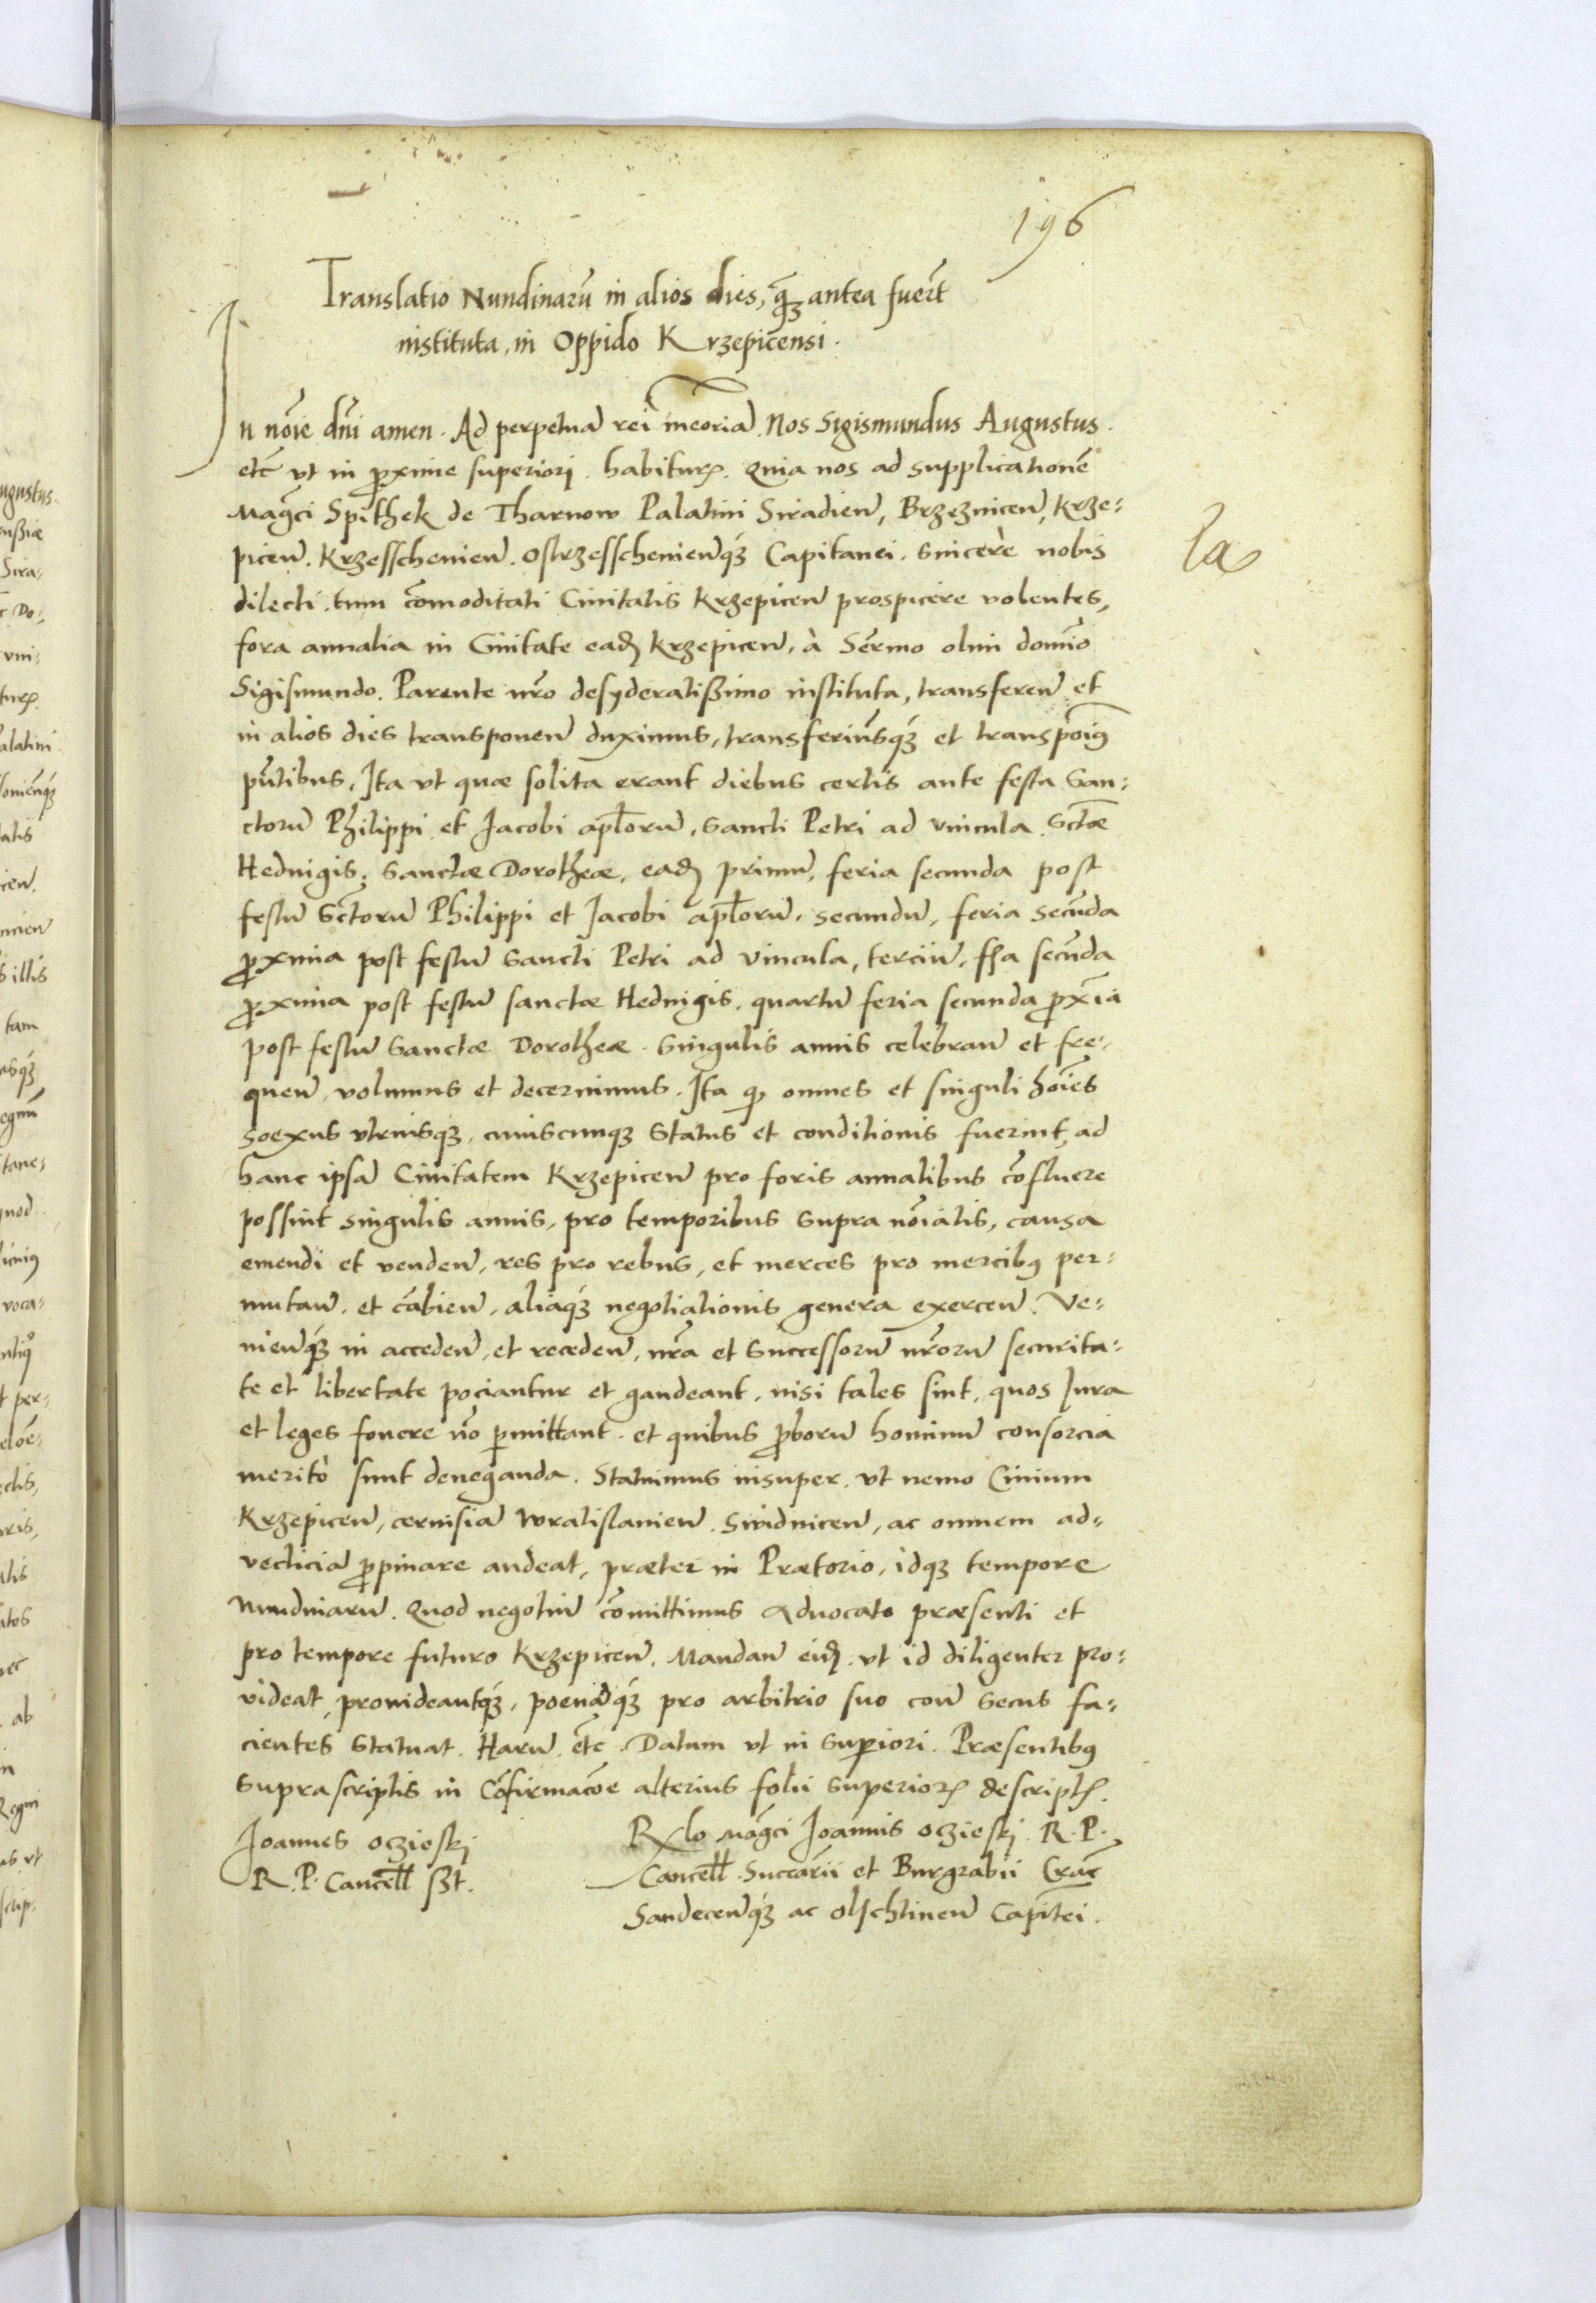 196
Translatio Nundinarũ in alios dies, q̃ʒ antea fuer̃t
instituta, in Oppido Krzepicensi.
In nõie dñi amen. Ad perpetuã rei meoriã. Nos Sigismundus Augustus.
etc̃ vt in proxime superiori. habitur. Quia nos ad supplicationẽ
Magci Spithek de Tharnow Palatini Siradieñ, Brzezniceñ, Krze-
piceñ. Krzesscheniеñ. Ostrzesschenieñqʒ Capitanei. sincerè nobis
dilecti. tum cõmoditati Ciuitatis Krzepiceñ prospicere volentes,
fora annalia in Ciuitate eadʒ Krzepiceñ, à Serͫo olim domĩo
Sigismundo. Parente nr̃o desyderatißimo instituta, transfereñ et
in alios dies transponeñ duximus, transferimꝰqʒ et transpõimꝰ
pñtibus, Ita vt quæ solita erant diebus certis ante festa San-
ctorũ Philippi et Jacobi apl̃orũ, Sancti Petri ad vincula. Sctæ
Heduigis, Sanctæ Dorotheæ, eadʒ primũ, feria secunda post
festũ Sctorũ Philippi et Jacobi apl̃orũ, secundũ, feria secũda
proxima post festũ Sancti Petri ad Vincula, terciũ, fꝛa secũda
proxima post festũ sanctæ Heduigis. quartũ feria secunda prox̃ia
post festũ Sanctæ Dorotheæ. Singulis annis celebrañ et fre-
queñ, volumus et decernimus. Ita qꝫ omnes et singuli hoĩes
soexus vtriusqʒ, cuiuscunqʒ status et conditionis fuerint, ad
hanc ipsã Ciuitatem Krzepiceñ pro foris annalibus cõfluere
possint singulis annis, pro temporibus supra noĩatis, causa
emendi et vendeñ, res pro rebus, et merces pro mercibꝰ per-
mutañ. et cãbieñ, aliaqʒ negotiationis genera exerceñ. Ve-
nieñqʒ in accedeñ, et recedeñ, nr̃a et Successorũ nr̃orũ securita-
te et libertate pociantur et gaudeant, nisi tales sint, quos Jura
et leges fouere nõ permittant. et quibus proborũ hominũ consorcia
meritò sunt deneganda. Statuimus insuper. vt nemo Ciuium
Krzepiceñ, ceruisiã Wratislauieñ. Swidniceñ, ac omnem ad-
vecticiã propinare audeat, præter in Prætorio, idqʒ tempore
Nundinarũ. Quod negotiũ cõmittimus Aduocato præsenti et
pro tempore futuro Krzepiceñ. Mandañ eidʒ. vt id diligenter pro-
videat, prouideantqʒ, poenãqʒ pro arbitrio suo coñ secus fa-
cientes statuat. Harũ. etc̃. Datum vt in superiori. Præsentibꝰ
suprascriptis in Cõfirmacõe alterius folii superior descript.
Joannes oczieskj
R. P. Cancell̃ ßt.
Rx̃lo Magci Joannis oczieskj. R. P.
Cancell̃. Succarii et Burgrabii Crac̃
Sandeceñqʒ ac olschtineñ Capitei.
la